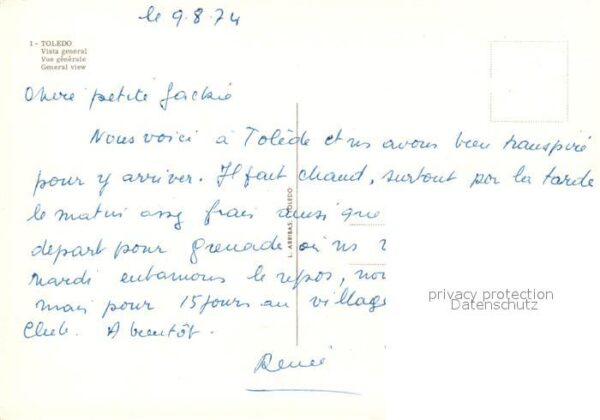 le 9.8.74
1 - TOLEDO
Vista general
Vue générale
General view
Chère petite Jackie
Nous voici à Tolède et ns avons bien transpiré
pour y arriver. Il fait chaud, surtout por la tarde
le matin assez frais ainsi que
depart pour grenade où ns
mardi entamons le repos, nou
mais pour 15 jours au village
Club. A bientôt.
René
L. ARRIBAS, TOLEDO
privacy protection
Datenschutz